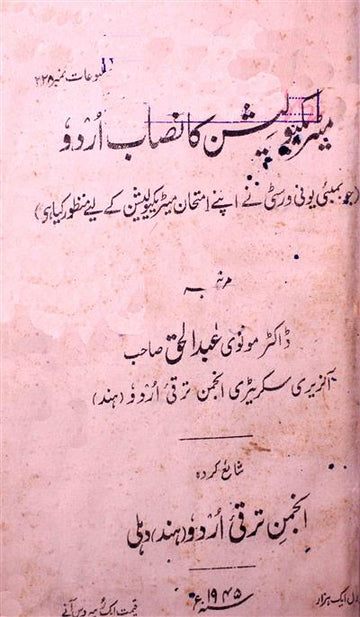 مطبوعات نمبر ۲۲۵
میٹریکیولیشن کا نصاب اُردو
(جو بمبئی یونی ورسٹی نے اپنے امتحان میٹریکیولیشن کے لیے منظور کیا ہے)
مرتبہ
ڈاکٹر مولوی عبدالحق صاحب
آنریری سکریٹری انجمن ترقیٔ اُردو (ہند)
شایع کردہ
انجمن ترقیٔ اُردو (ہند) دہلی
۱۹۴۵ء
ایک ہزار
قیمت ایک رپیہ دس آنے